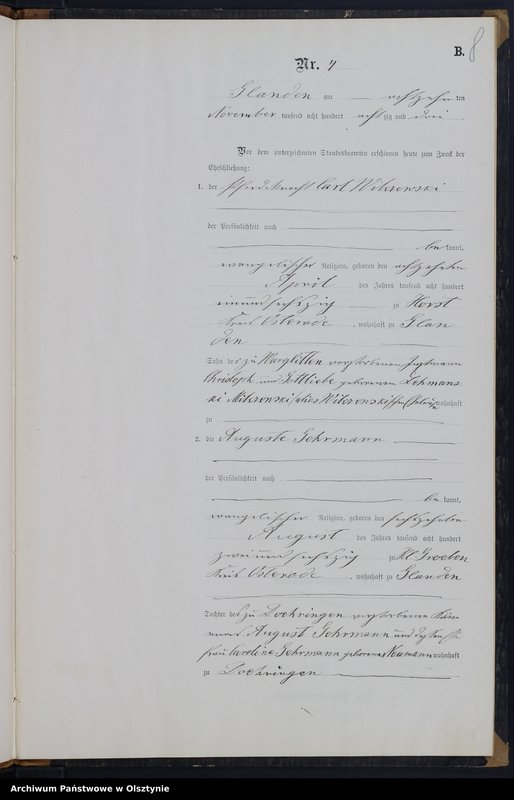 B.
8
Nr. 4
Glanden am achtzehnten
November tausend acht hundert achtzig und drei
Vor dem unterzeichneten Standesbeamten erschienen heute zum Zweck der
Eheschließung:
1. der Pferdeknecht Carl Wilzewski
der Persönlichkeit nach
bekannt,
evangelischer Religion, geboren den achtzehnten
April des Jahres tausend acht hundert
einundsechszig zu Horst
Kreis Osterode, wohnhaft zu Glan
den
Sohn des zu Warglitten verstorbenen Instmann
Christoph und Gottliebe geborenen Lehmans
ki wohnhaft
zu
2. die Auguste Gehrmann
der Persönlichkeit nach
bekannt,
evangelischer Religion, geboren den sechszehnten
August des Jahres tausend acht hundert
zweiundsechszig zu Kl. Groeben
Kreis Osterode, wohnhaft zu Glanden
Tochter des zu Doehringen verstorbenen Käm
merer August Gehrmann und dessen
frau Caroline Gehrmann geborene Neumann wohnhaft
zu Doehringen
Archiwum Państwowe w Olsztynie